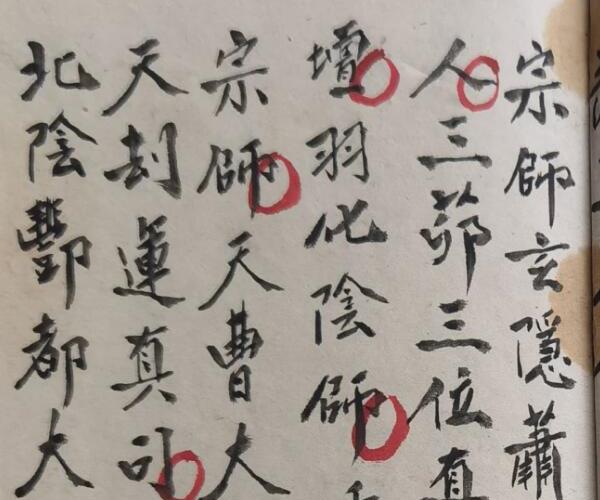 宗師玄隱蕭
人三茆三位真
壇羽化陰師
宗師天曹大
天刦運真司
北陰酆都大